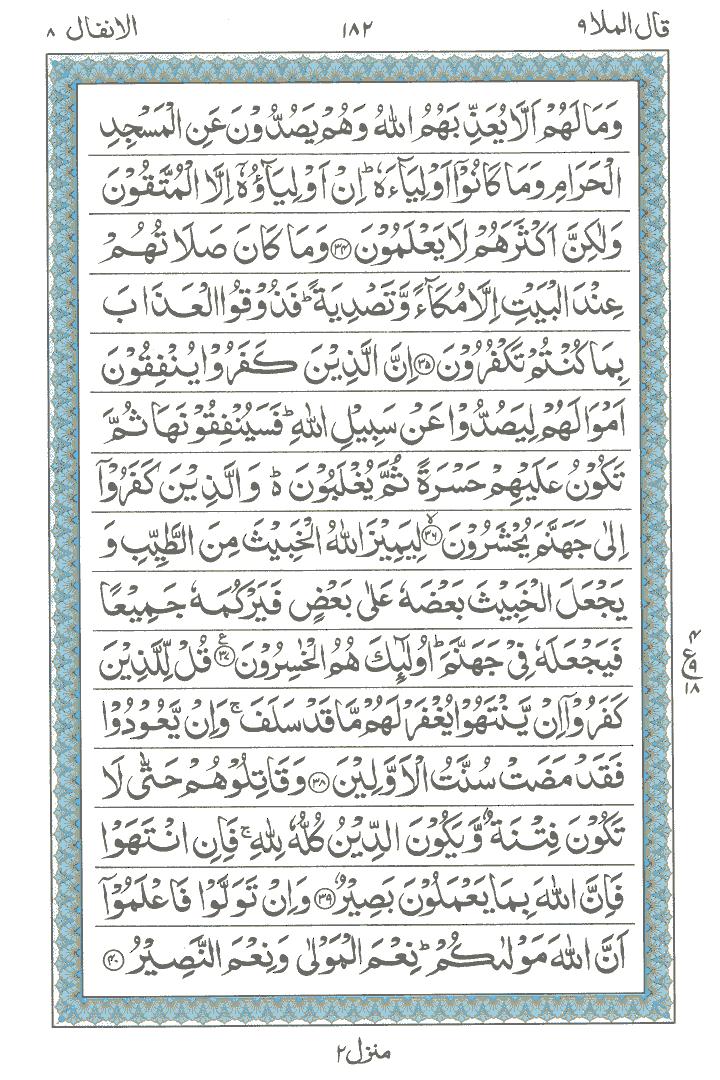 قال الملا ٩ ١٨٢ الانفال ٨
وَمَا لَهُمْ اَلَّا يُعَذِّبَهُمُ اللّٰهُ وَهُمْ يَصُدُّوْنَ عَنِ الْمَسْجِدِ
الْحَرَامِ وَمَا كَانُوْۤا اَوْلِيَآءَهٗ ؕ اِنْ اَوْلِيَآؤُهٗۤ اِلَّا الْمُتَّقُوْنَ
وَلٰكِنَّ اَكْثَرَهُمْ لَا يَعْلَمُوْنَ ﴿۳۴﴾ وَمَا كَانَ صَلَاتُهُمْ
عِنْدَ الْبَيْتِ اِلَّا مُكَآءً وَّتَصْدِيَةً ؕ فَذُوْقُوا الْعَذَابَ
بِمَا كُنْتُمْ تَكْفُرُوْنَ ﴿۳۵﴾ اِنَّ الَّذِيْنَ كَفَرُوْا يُنْفِقُوْنَ
اَمْوَالَهُمْ لِيَصُدُّوْا عَنْ سَبِيْلِ اللّٰهِ ؕ فَسَيُنْفِقُوْنَهَا ثُمَّ
تَكُوْنُ عَلَيْهِمْ حَسْرَةً ثُمَّ يُغْلَبُوْنَ ؕ وَالَّذِيْنَ كَفَرُوْۤا
اِلٰى جَهَنَّمَ يُحْشَرُوْنَ ﴿۳۶﴾ۙ لِيَمِيْزَ اللّٰهُ الْخَبِيْثَ مِنَ الطَّيِّبِ وَ
يَجْعَلَ الْخَبِيْثَ بَعْضَهٗ عَلٰى بَعْضٍ فَيَرْكُمَهٗ جَمِيْعًا
فَيَجْعَلَهٗ فِىْ جَهَنَّمَ ؕ اُولٰٓئِكَ هُمُ الْخٰسِرُوْنَ ﴿۳۷﴾ع قُلْ لِّلَّذِيْنَ
كَفَرُوْۤا اِنْ يَّنْتَهُوْا يُغْفَرْ لَهُمْ مَّا قَدْ سَلَفَ ۚ وَاِنْ يَّعُوْدُوْا
فَقَدْ مَضَتْ سُنَّتُ الْاَوَّلِيْنَ ﴿۳۸﴾ وَقَاتِلُوْهُمْ حَتّٰى لَا
تَكُوْنَ فِتْنَةٌ وَّيَكُوْنَ الدِّيْنُ كُلُّهٗ لِلّٰهِ ۚ فَاِنِ انْتَهَوْا
فَاِنَّ اللّٰهَ بِمَا يَعْمَلُوْنَ بَصِيْرٌ ﴿۳۹﴾ وَاِنْ تَوَلَّوْا فَاعْلَمُوْۤا
اَنَّ اللّٰهَ مَوْلٰىكُمْ ؕ نِعْمَ الْمَوْلٰى وَنِعْمَ النَّصِيْرُ ﴿۴۰﴾
۴
ع
٩
١٨
منزل ٢